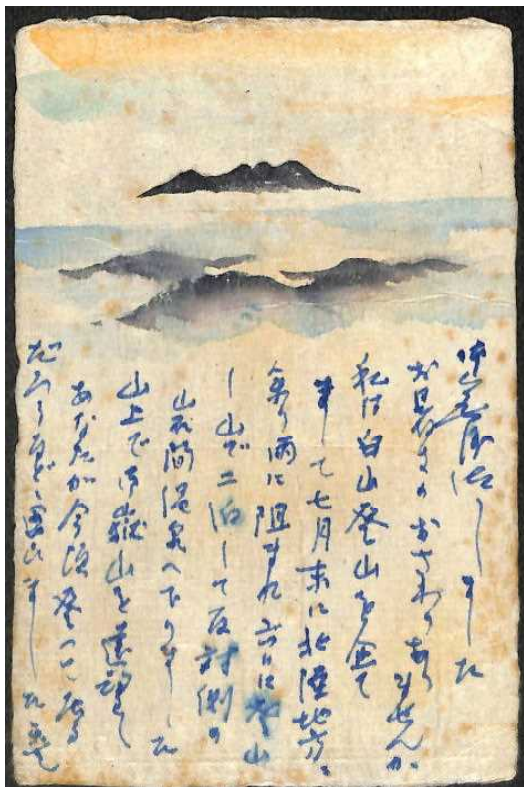 御無沙汰しました
おさわりありませんか
私は白山登山を企て
まして七月末に北陸地方へ
参り雨に阻まれ六日に登山
し山で二泊して反対側の
岩間温泉へ下りました
山上で御嶽山を遠望し
あなたが今頃登つて居る
だらうなど言ひました